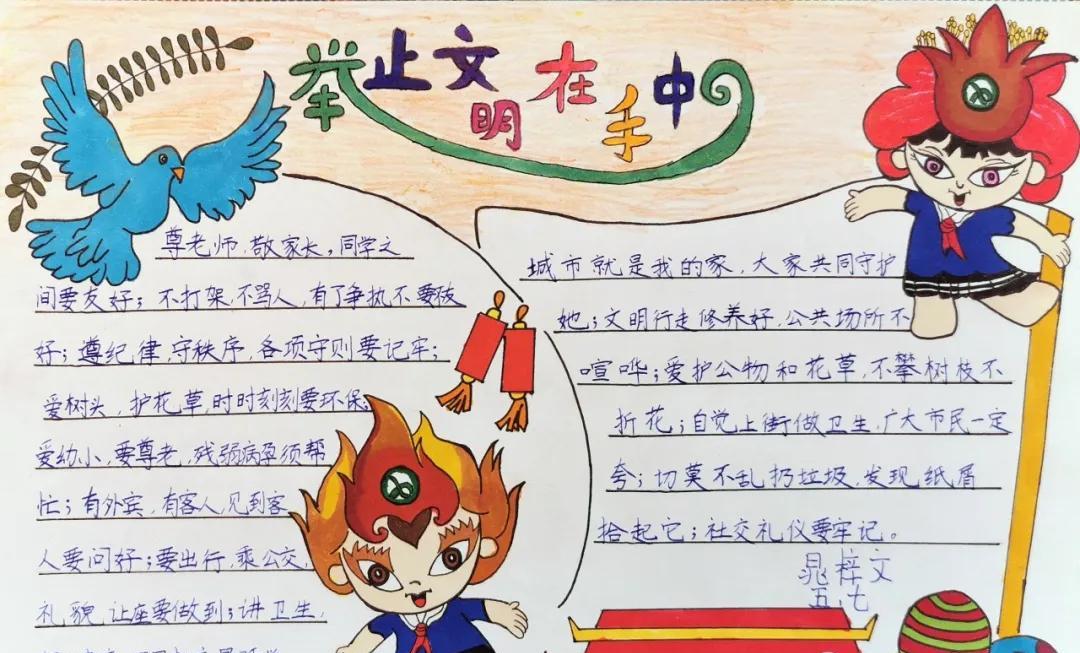 举止文明在手中
尊老师，敬家长，同学之
间要友好；不打架，不骂人，有了争执不要彼
好；遵纪，律，守秩序，各项守则要记牢；
爱树头，护花草，时时刻刻要环保；
爱幼小，要尊老，残弱病孕须帮
忙；有外宾，有客人，见到客
人要问好；要出行，乘公交，
礼，貌，让座要做到；讲卫生，
城市就是我的家，大家共同守护
她；文明行走修养好，公共场所不
喧哗；爱护公物和花草，不攀树枝不
折花；自觉上街做卫生，广大市民一定
夸；切莫不乱扔垃圾，发现纸屑
拾起它；社交礼仪要牢记。
晁梓文
五.七